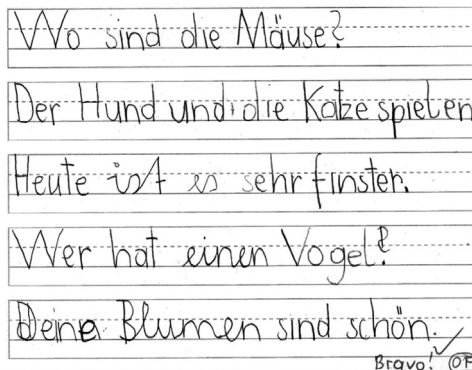 Wo sind die Mäuse?
Der Hund und die Katze spielen
Heute ist es sehr finster.
Wer hat einen Vogel?
Deine Blumen sind schön.
Bravo!